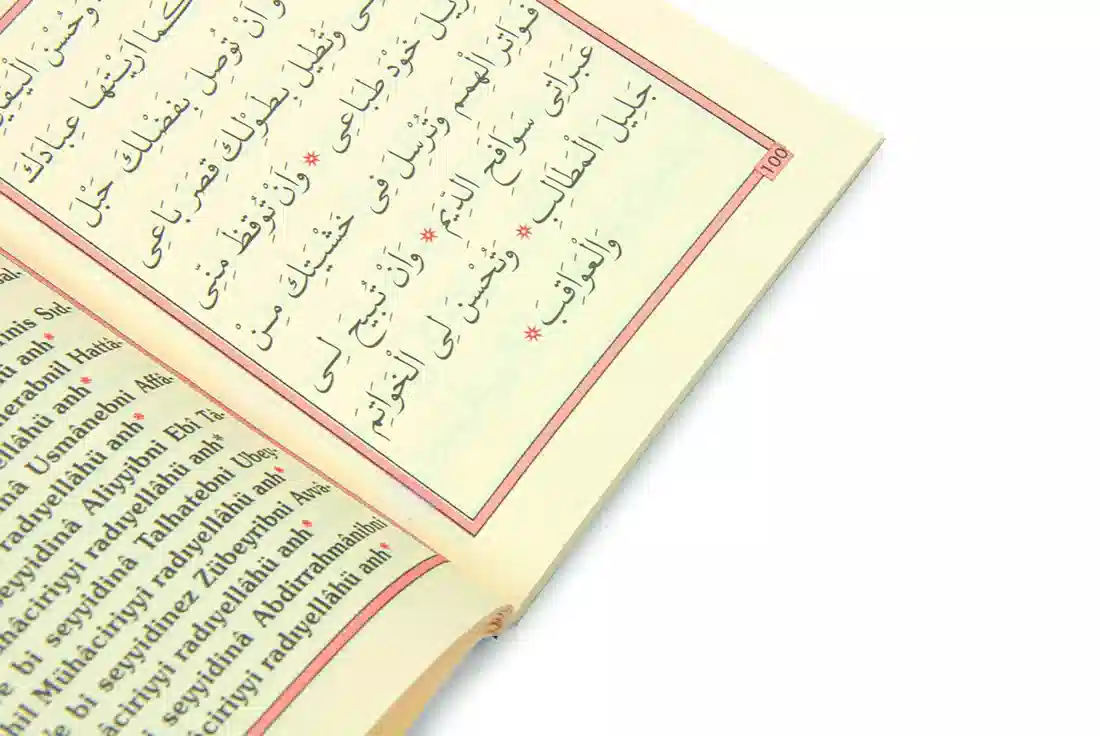 وَحُسْنَ
كَمَا اَرَيْتَهَا عِبَادَكَ
وَاَنْ تُوصِلَ بِفَضْلِكَ حَبْلَ
وَتُطِيلَ بِطَوْلِكَ قِصَرَ بَاعِى
خَوَرَ طِبَاعِى * وَاَنْ تُوقِظَ مِنِّى
فَوَاتِرَ الْهِمَمِ وَتُرْسِلَ فِى خَشْيَتِكَ مِنْ
عَبَرَاتِى سَوَافِحَ الدِّيَمِ * وَاَنْ تُبِيحَ لِى
جَلِيلَ الْمَطَالِبِ * وَتُحْسِنَ لِىَ الْخَوَاتِمَ
وَالْعَوَاقِبَ *
100
Sıd-
anh*
Hattâ-
anh*
Usmânebni Affâ-
radıyellâhü anh*
Aliyyibni Ebî Tâ-
radıyellâhü anh*
bi seyyidinâ Talhatebni Ubey-
Mühâciriyyi radıyellâhü anh*
bi seyyidinez Zübeyribni Avvâ-
radıyellâhü anh*
seyyidinâ Abdirrahmânibni
radıyellâhü anh*